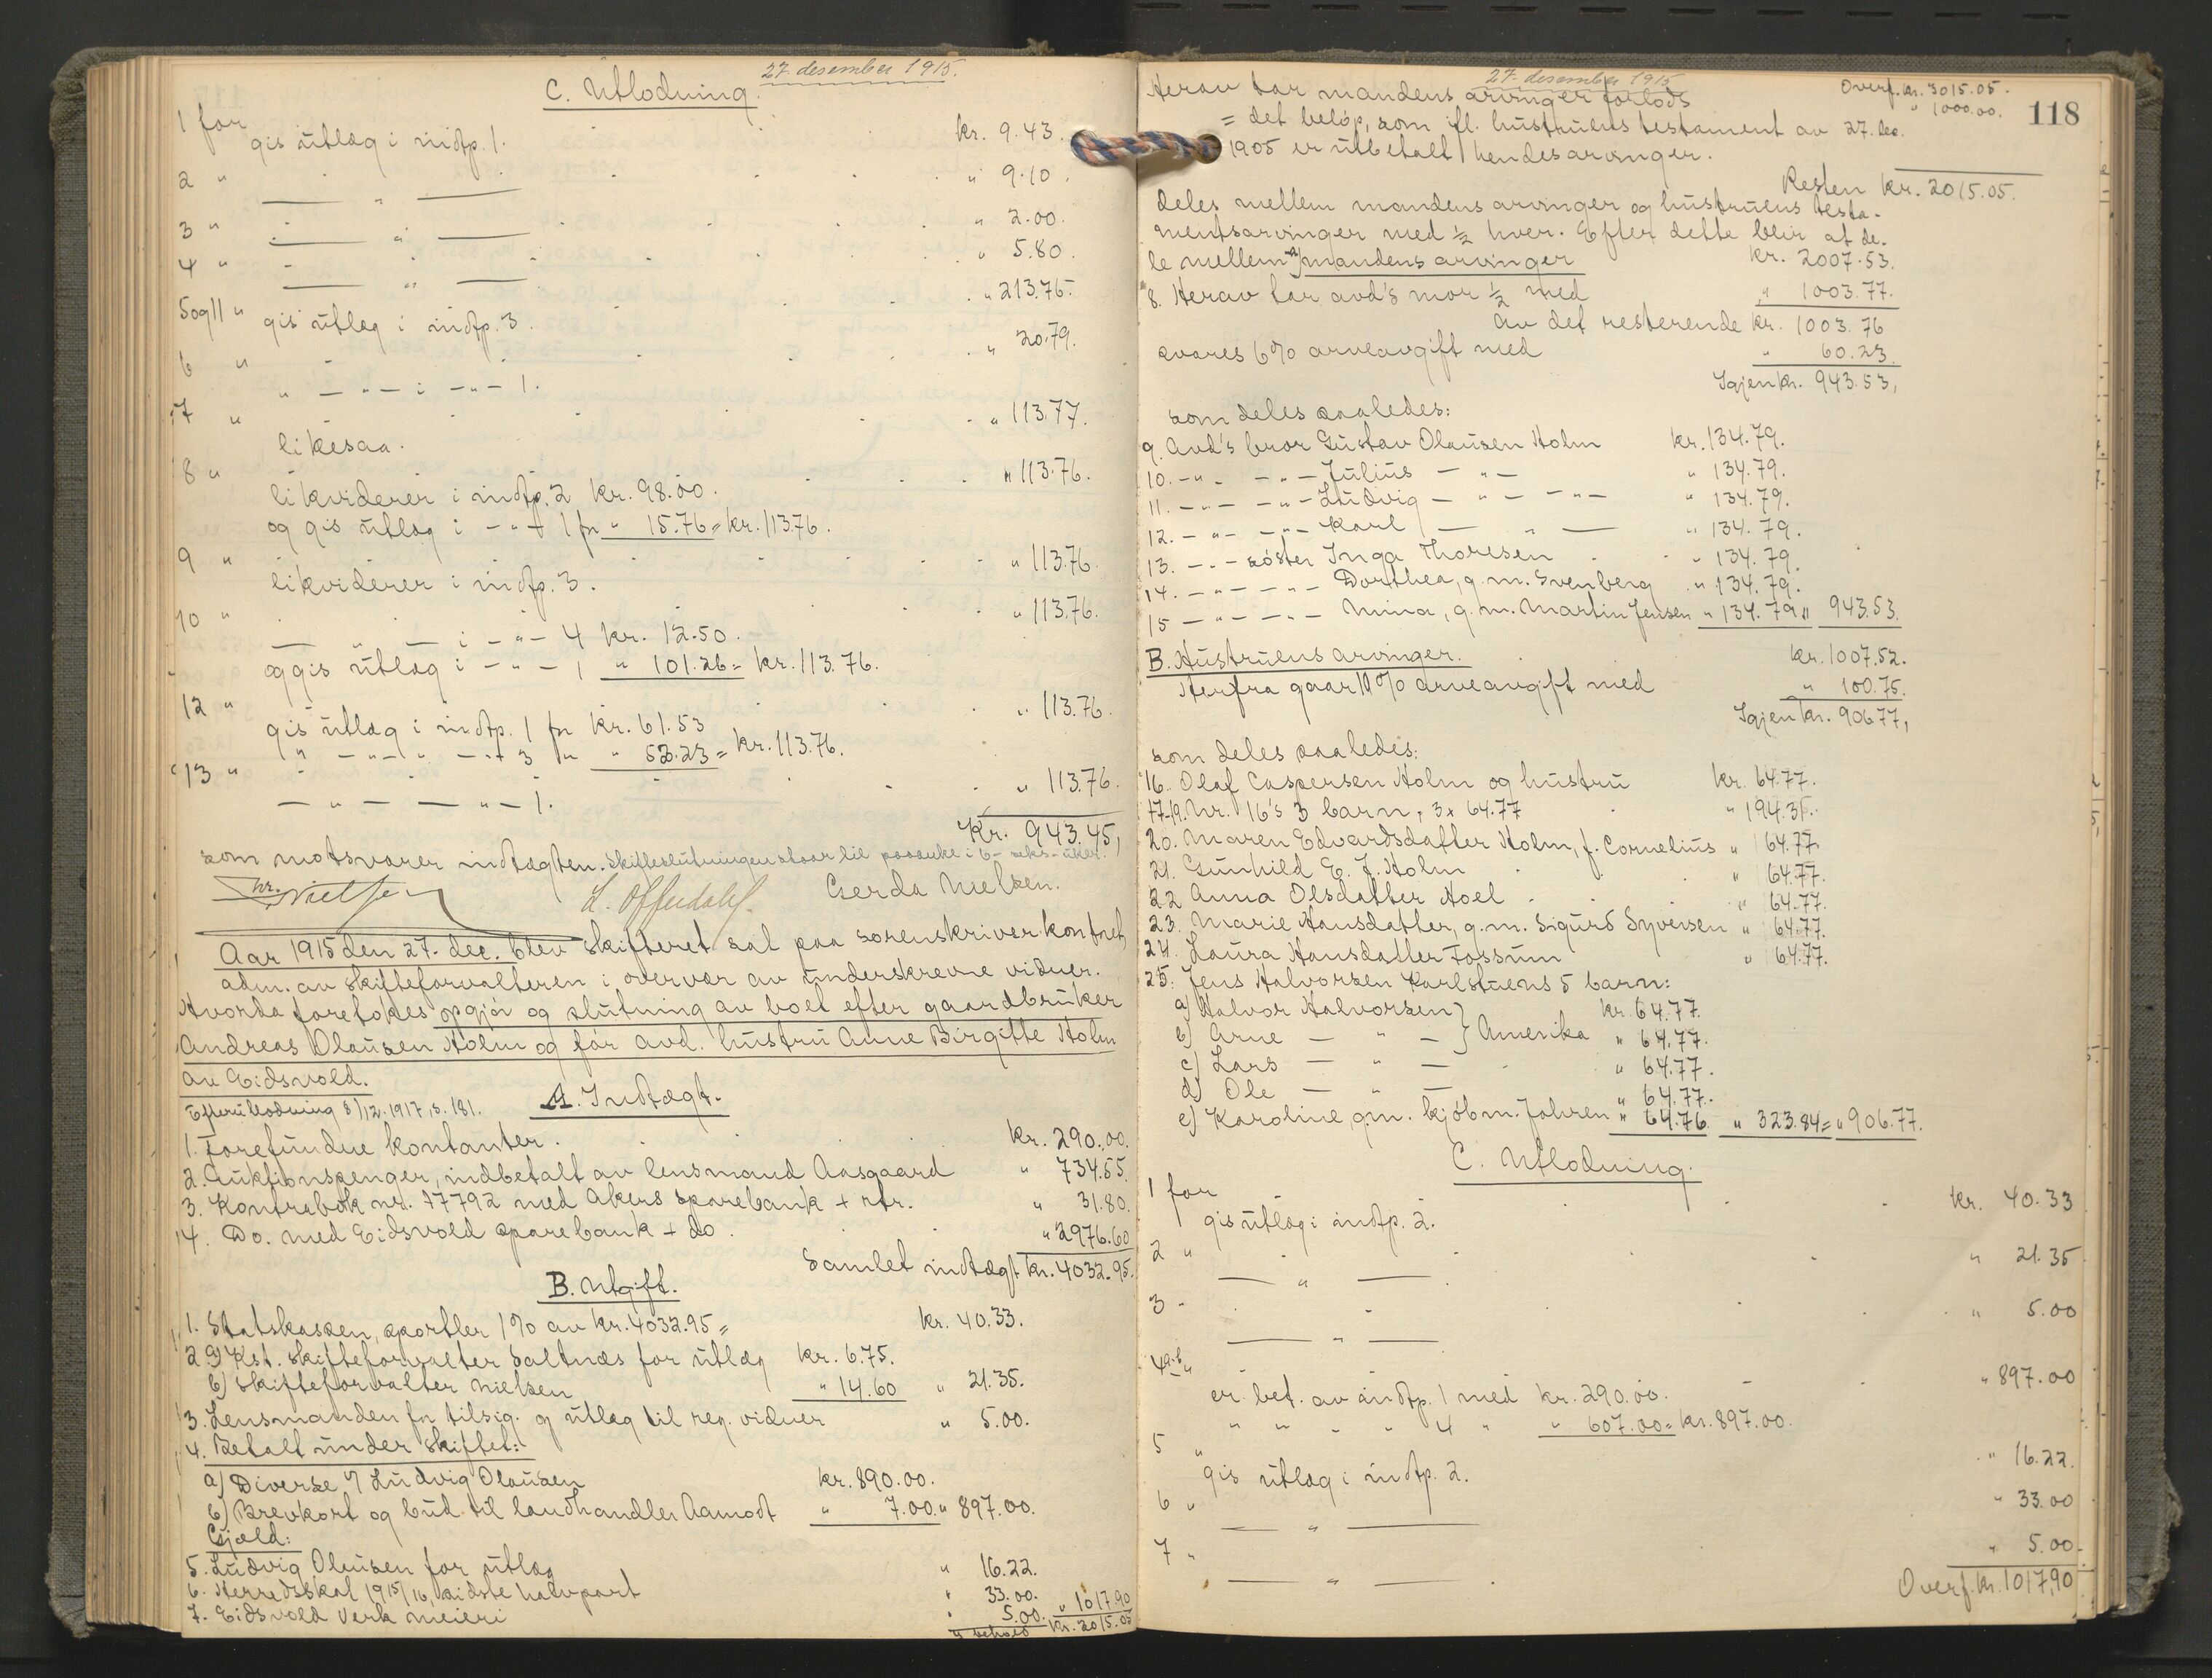 27. desember 1915.
C. Utlodning.
1 for . . . kr. 9.43.
gis utlæg i indtp. 1.
2 " . . . " 9.10.
— " —
3 " . . . " 2.00.
— " —
4 " . . . " 5.80.
— " —
5 og 11 " . . . " 213.76.
gis utlæg i indtp. 3.
6 " . . . " 20.79.
" — " — i — " — 1.
7 " . . . " 113.77.
likesaa.
8 " . . . " 113.76.
likviderer i indtp. 2 kr. 98.00.
og gis utlæg i — " — 1 fr " 15.76 = kr. 113.76.
9 " . . . " 113.76.
likviderer i indtp. 3.
10 " . . . " 113.76.
— " — i — " — 4 kr. 12.50.
og gis utlæg i — " — 1 " 101.26 = kr. 113.76.
12 " . . . " 113.76.
gis utlæg i indtp. 1 fr kr. 61.53
" — " — " — " 3 fr " 52.23 = kr. 113.76.
13 " . . . " 113.76.
— " — — " — 1.
Kr. 943.45,
som motsvarer indtægten. Skifteslutningen staar til paaanke i 6 - seks - uker.
Nielsen L. Offerdahl. Gerda Nielsen.
Aar 1915 den 27. dec. blev skifteret sat paa sorenskriverkontoret,
adm. av skifteforvalteren i overvær av underskrevne vidner.
Hvorda foretokes opgjør og slutning av boet efter gaardbruker
Andreas Olausen Holm og før avd. hustru Anne Birgitte Holm
av Eidsvold.
Efterutlodning 8/12.1917, s. 181.
A. Indtægt.
1. Forefundne kontanter. . . . kr. 290.00.
2. Auktionspenger, indbetalt av lensmand Aasgaard " 734.55.
3. Kontrabok nr. 77792 med Akers sparebank + rtr. " 31.80.
4. Do. med Eidsvold sparebank + do . . . " 2976.60
Samlet indtægt kr. 4032.95.
B. Utgift.
1. Statskassen, sportler 1% av kr. 4032.95 = kr. 40.33.
2. a) Kst. skifteforvalter Saltnæs for utlæg kr. 6.75.
b) Skifteforvalter Nielsen " 14.60 " 21.35.
3. Lensmanden fr tilsig. og utlæg til reg. vidner " 5.00.
4. Betalt under skiftet:
a) Diverse v/ Ludvig Olausen kr. 890.00.
b) Brevkort og bud til landhandler Aamodt " 7.00. " 897.00.
Gjæld:
5. Ludvig Olausen for utlæg " 16.22.
6. Herredsskat 1915/16, sidste halvpart " 33.00.
7. Eidsvold Verk meieri " 5.00. " 1017.90
I behold kr. 3015.05
27. desember 1915
118
Overf. kr. 3015.05.
Herav tar mandens arvinger forlods
" 1000.00.
= det beløp, som ifl. hustruens testament av 27. dec.
1905 er utbetalt hendes arvinger.
Resten kr. 2015.05.
deles mellem mandens arvinger og hustruens testa-
mentsarvinger med ½ hver. Efter dette blir at de-
le mellem A) mandens arvinger kr. 2007.53.
8. Herav tar avd's mor ½ med " 1003.77.
Av det resterende kr. 1003.76
svares 6% arveavgift med " 60.23.
Igjen kr. 943.53,
som deles saaledes:
9. Avd's bror Gustav Olausen Holm kr. 134.79.
10. — " — — " — Julius — " — " 134.79.
11. — " — — " — Ludvig — " — — " — " 134.79.
12. — " — — " — Karl — " — " 134.79.
13. — " — søster Inga Thoresen . " 134.79.
14. — " — — " — Dorthea, g. m. Svenberg " 134.79.
15 — " — — " — Mina, g. m. Martin Jensen " 134.79 " 943.53.
B. Hustruens arvinger. . kr. 1007.52.
Herfra gaar 10% arveavgift med " 100.75.
Igjen kr. 906.77,
som deles saaledes:
16. Olaf Caspersen Holm og hustru kr. 64.77.
17-19. Nr. 16's 3 barn, 3 x 64.77 . " 194.31.
20. Maren Edvardsdatter Holm, f. Cornelius " 64.77.
21. Gunhild E. J. Holm . " 64.77.
22 Anna Olsdatter Hoel . . " 64.77.
23. Marie Hansdatter, g. m. Sigurd Syversen " 64.77.
24. Laura Hansdatter Fossum " 64.77.
25. Jens Halvorsen Karlstuens 5 barn:
a) Halvor Halvorsen } kr. 64.77.
b) Arne — " — } Amerika " 64.77.
c) Lars — " — . " 64.77.
d) Ole — " — " 64.77.
e) Karoline, g. m. kjøbm. Johren " 64.76. " 323.84 = " 906.77.
C. Utlodning.
1 for . . . kr. 40.33
gis utlæg i indtp. 2.
2 " . . . " 21.35
— " — .
3 " . . . " 5.00
— " —
4 a-b " . . . " 897.00
er bet. av indtp. 1 med kr. 290.00.
" " " " 4 " " 607.00 = kr. 897.00.
5 " . . . " 16.22.
gis utlæg i indtp. 2.
6 " . . . " 33.00
— " —
7 " . . . " 5.00
— " — .
Overf. kr. 1017,90